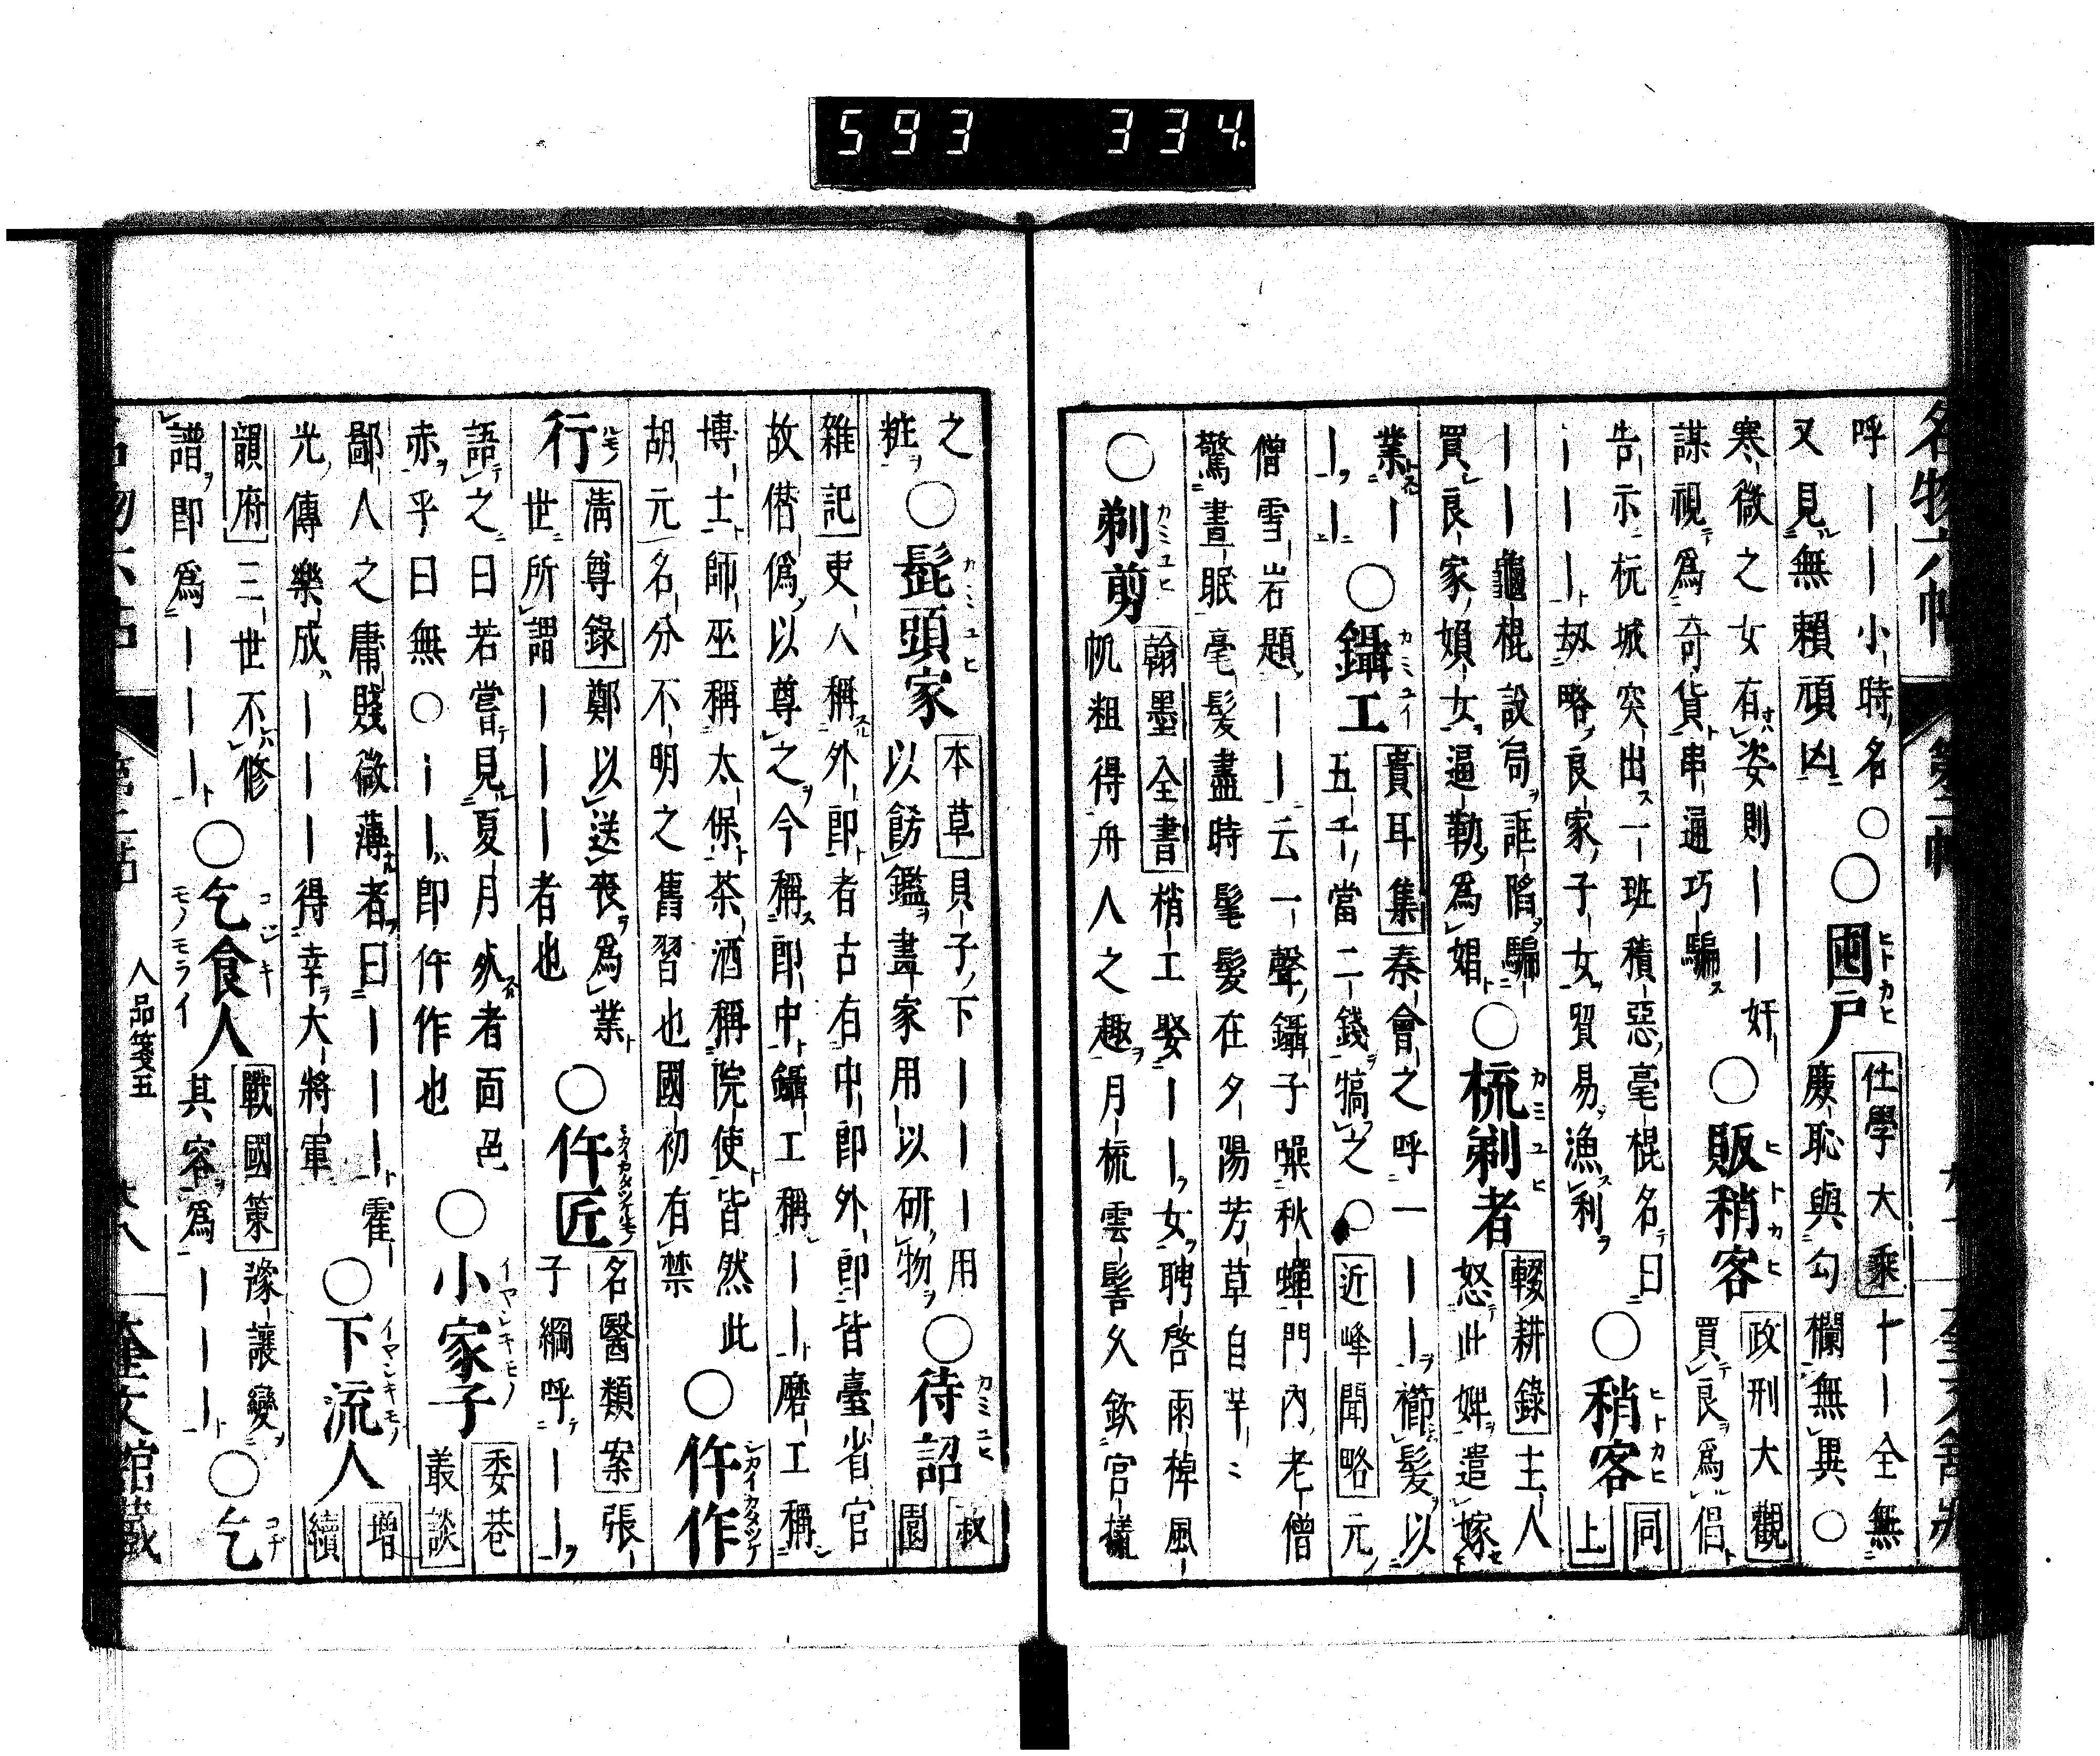 593 334
名物六帖 第二帖
呼｜｜｜小時名○
又見無賴頑凶
○囤戶 ヒトカヒ
仕學大乘 十｜全無
廉恥與勾欄無異○
寒微之女有姿則｜｜｜奸
謀視爲奇貨串通巧騙
○販稍客 ヒトカヒ
政刑大觀
買良爲倡
告示杭城突出一班積惡毫棍名曰
｜｜｜｜刼略良家子女貿易漁利
○稍客 ヒトカヒ
同
上
｜｜｜龜棍設局誆陷騙
買良家娟女逼勒爲娼
○梳剃者 カミユヒ
輟耕錄 主人
怒此婢遣嫁
業｜
｜｜
○鑷工 カミユイ
貴耳集 秦會之呼一｜｜櫛髮以
五千當二錢犒之○近峰聞略 元
僧雪岩題｜｜｜云一聲鑷子噪秋蟬門內老僧
驚晝眠毫髮盡時髦髮在夕陽芳草自芊ゝ
○剃剪 カミユヒ
翰墨全書 梢工娶｜｜女聘啓雨棹風
帆粗得舟人之趣月梳雲髻久欽宮樣
之
粧
○髭頭家 カミユヒ
本草 貝子下｜｜｜用
以飾鑑畫家用以研物
○待詔 カミユヒ
菽
園
雜記 吏人稱外郎者古有中郎外郎皆臺省官
故僣僞以尊之今稱郎中鑷工稱｜｜磨工稱
博士師巫稱太保茶酒稱院使皆然此
胡元名分不明之舊習也國初有禁
○仵作
行
清尊錄 鄭以送喪爲業
世所謂｜｜｜者也
○仵匠
名醫類案 張
子綱呼｜｜
語之曰若嘗見夏月死者面色
赤乎曰無○｜｜卽仵作也
○小家子 イヤシキモノ
委巷
叢談
鄙人之庸賤微薄者曰｜｜｜霍
光傳樂成｜｜｜得幸大將軍
○下流人 イヤシキモノ
增
續
韻府 三世不修
譜卽爲｜｜｜
○乞食人 コジキ モノモライ
戰國策 豫讓變
其容爲｜｜｜
○乞
人品箋五
奎文館藏